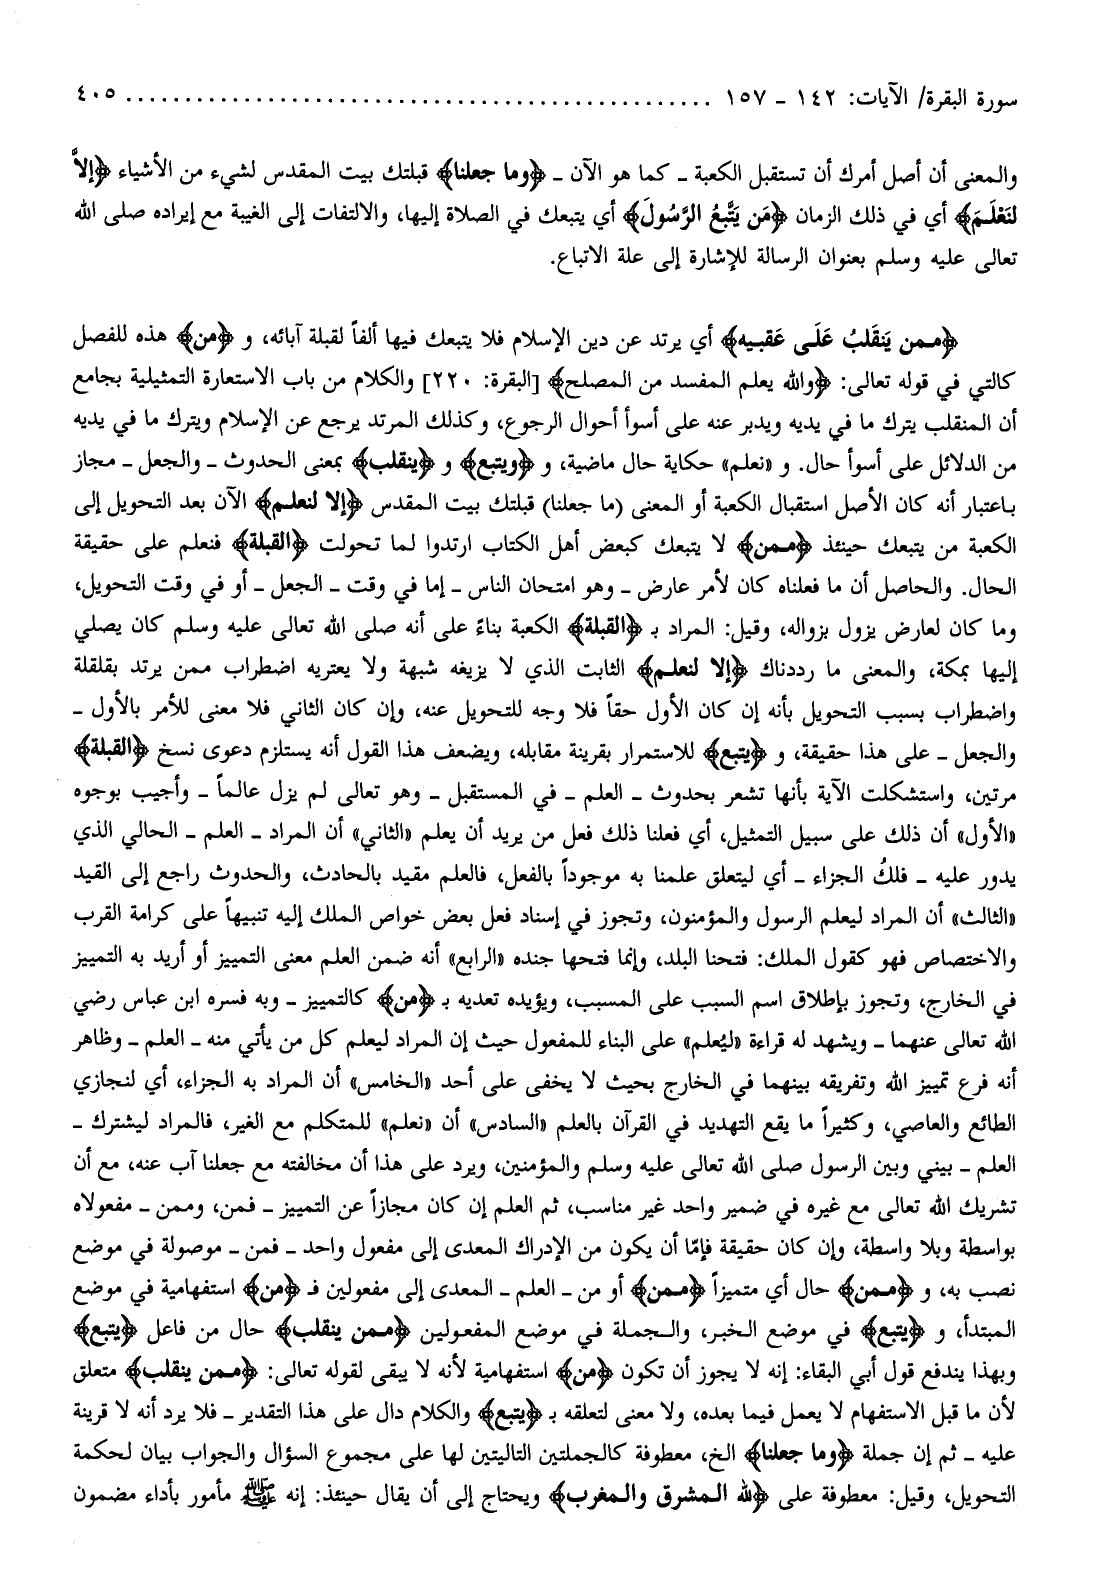 سورة البقرة/ الآيات: ١٤٢ ـ ١٥٧ .................................................... ٤٠٥
والمعنى أن أصل أمرك أن تستقبل الكعبة ـ كما هو الآن ـ ﴿وما جعلنا﴾ قبلتك بيت المقدس لشيء من الأشياء ﴿إلاَّ
لنَعْلَمَ﴾ أي في ذلك الزمان ﴿مَن يَتَّبِعُ الرَّسُولَ﴾ أي يتبعك في الصلاة إليها، والالتفات إلى الغيبة مع إيراده صلى الله
تعالى عليه وسلم بعنوان الرسالة للإشارة إلى علة الاتباع.
﴿ممن يَنقَلبُ عَلَى عَقبيه﴾ أي يرتد عن دين الإسلام فلا يتبعك فيها ألفاً لقبلة آبائه، و ﴿من﴾ هذه للفصل
كالتي في قوله تعالى: ﴿والله يعلم المفسد من المصلح﴾ [البقرة: ٢٢٠] والكلام من باب الاستعارة التمثيلية بجامع
أن المنقلب يترك ما في يديه ويدبر عنه على أسوأ أحوال الرجوع، وكذلك المرتد يرجع عن الإسلام ويترك ما في يديه
من الدلائل على أسوأ حال. و «نعلم» حكاية حال ماضية، و ﴿ويتبع﴾ و ﴿ينقلب﴾ بمعنى الحدوث ـ والجعل ـ مجاز
باعتبار أنه كان الأصل استقبال الكعبة أو المعنى (ما جعلنا) قبلتك بيت المقدس ﴿إلا لنعلم﴾ الآن بعد التحويل إلى
الكعبة من يتبعك حينئذ ﴿ممن﴾ لا يتبعك كبعض أهل الكتاب ارتدوا لما تحولت ﴿القبلة﴾ فنعلم على حقيقة
الحال. والحاصل أن ما فعلناه كان لأمر عارض ـ وهو امتحان الناس ـ إما في وقت ـ الجعل ـ أو في وقت التحويل،
وما كان لعارض يزول بزواله، وقيل: المراد بـ ﴿القبلة﴾ الكعبة بناءً على أنه صلى الله تعالى عليه وسلم كان يصلي
إليها بمكة، والمعنى ما رددناك ﴿إلا لنعلم﴾ الثابت الذي لا يزيغه شبهة ولا يعتريه اضطراب ممن يرتد بقلقلة
واضطراب بسبب التحويل بأنه إن كان الأول حقاً فلا وجه للتحويل عنه، وإن كان الثاني فلا معنى للأمر بالأول ـ
والجعل ـ على هذا حقيقة، و ﴿يتبع﴾ للاستمرار بقرينة مقابله، ويضعف هذا القول أنه يستلزم دعوى نسخ ﴿القبلة﴾
مرتين، واستشكلت الآية بأنها تشعر بحدوث ـ العلم ـ في المستقبل ـ وهو تعالى لم يزل عالماً ـ وأجيب بوجوه
«الأول» أن ذلك على سبيل التمثيل، أي فعلنا ذلك فعل من يريد أن يعلم «الثاني» أن المراد ـ العلم ـ الحالي الذي
يدور عليه ـ فلكُ الجزاء ـ أي ليتعلق علمنا به موجوداً بالفعل، فالعلم مقيد بالحادث، والحدوث راجع إلى القيد
«الثالث» أن المراد ليعلم الرسول والمؤمنون، وتجوز في إسناد فعل بعض خواص الملك إليه تنبيهاً على كرامة القرب
والاختصاص فهو كقول الملك: فتحنا البلد، وإنما فتحها جنده «الرابع» أنه ضمن العلم معنى التمييز أو أريد به التمييز
في الخارج، وتجوز بإطلاق اسم السبب على المسبب، ويؤيده تعديه بـ ﴿من﴾ كالتمييز ـ وبه فسره ابن عباس رضي
الله تعالى عنهما ـ ويشهد له قراءة «ليُعلم» على البناء للمفعول حيث إن المراد ليعلم كل من يأتي منه ـ العلم ـ وظاهر
أنه فرع تمييز الله وتفريقه بينهما في الخارج بحيث لا يخفى على أحد «الخامس» أن المراد به الجزاء، أي لنجازي
الطائع والعاصي، وكثيراً ما يقع التهديد في القرآن بالعلم «السادس» أن «نعلم» للمتكلم مع الغير، فالمراد ليشترك ـ
العلم ـ بيني وبين الرسول صلى الله تعالى عليه وسلم والمؤمنين، ويرد على هذا أن مخالفته مع جعلنا آب عنه، مع أن
تشريك الله تعالى مع غيره في ضمير واحد غير مناسب، ثم العلم إن كان مجازاً عن التمييز ـ فمن، وممن ـ مفعولاه
بواسطة وبلا واسطة، وإن كان حقيقة فإمّا أن يكون من الإدراك المعدى إلى مفعول واحد ـ فمن ـ موصولة في موضع
نصب به، و ﴿ممن﴾ حال أي متميزاً ﴿ممن﴾ أو من ـ العلم ـ المعدى إلى مفعولين فـ ﴿من﴾ استفهامية في موضع
المبتدأ، و ﴿يتبع﴾ في موضع الخبر، والجملة في موضع المفعولين ﴿ممن ينقلب﴾ حال من فاعل ﴿يتبع﴾
وبهذا يندفع قول أبي البقاء: إنه لا يجوز أن تكون ﴿من﴾ استفهامية لأنه لا يبقى لقوله تعالى: ﴿ممن ينقلب﴾ متعلق
لأن ما قبل الاستفهام لا يعمل فيما بعده، ولا معنى لتعلقه بـ ﴿يتبع﴾ والكلام دال على هذا التقدير ـ فلا يرد أنه لا قرينة
عليه ـ ثم إن جملة ﴿وما جعلنا﴾ الخ، معطوفة كالجملتين التاليتين لها على مجموع السؤال والجواب بيان لحكمة
التحويل، وقيل: معطوفة على ﴿لله المشرق والمغرب﴾ ويحتاج إلى أن يقال حينئذ: إنه ﷺ مأمور بأداء مضمون